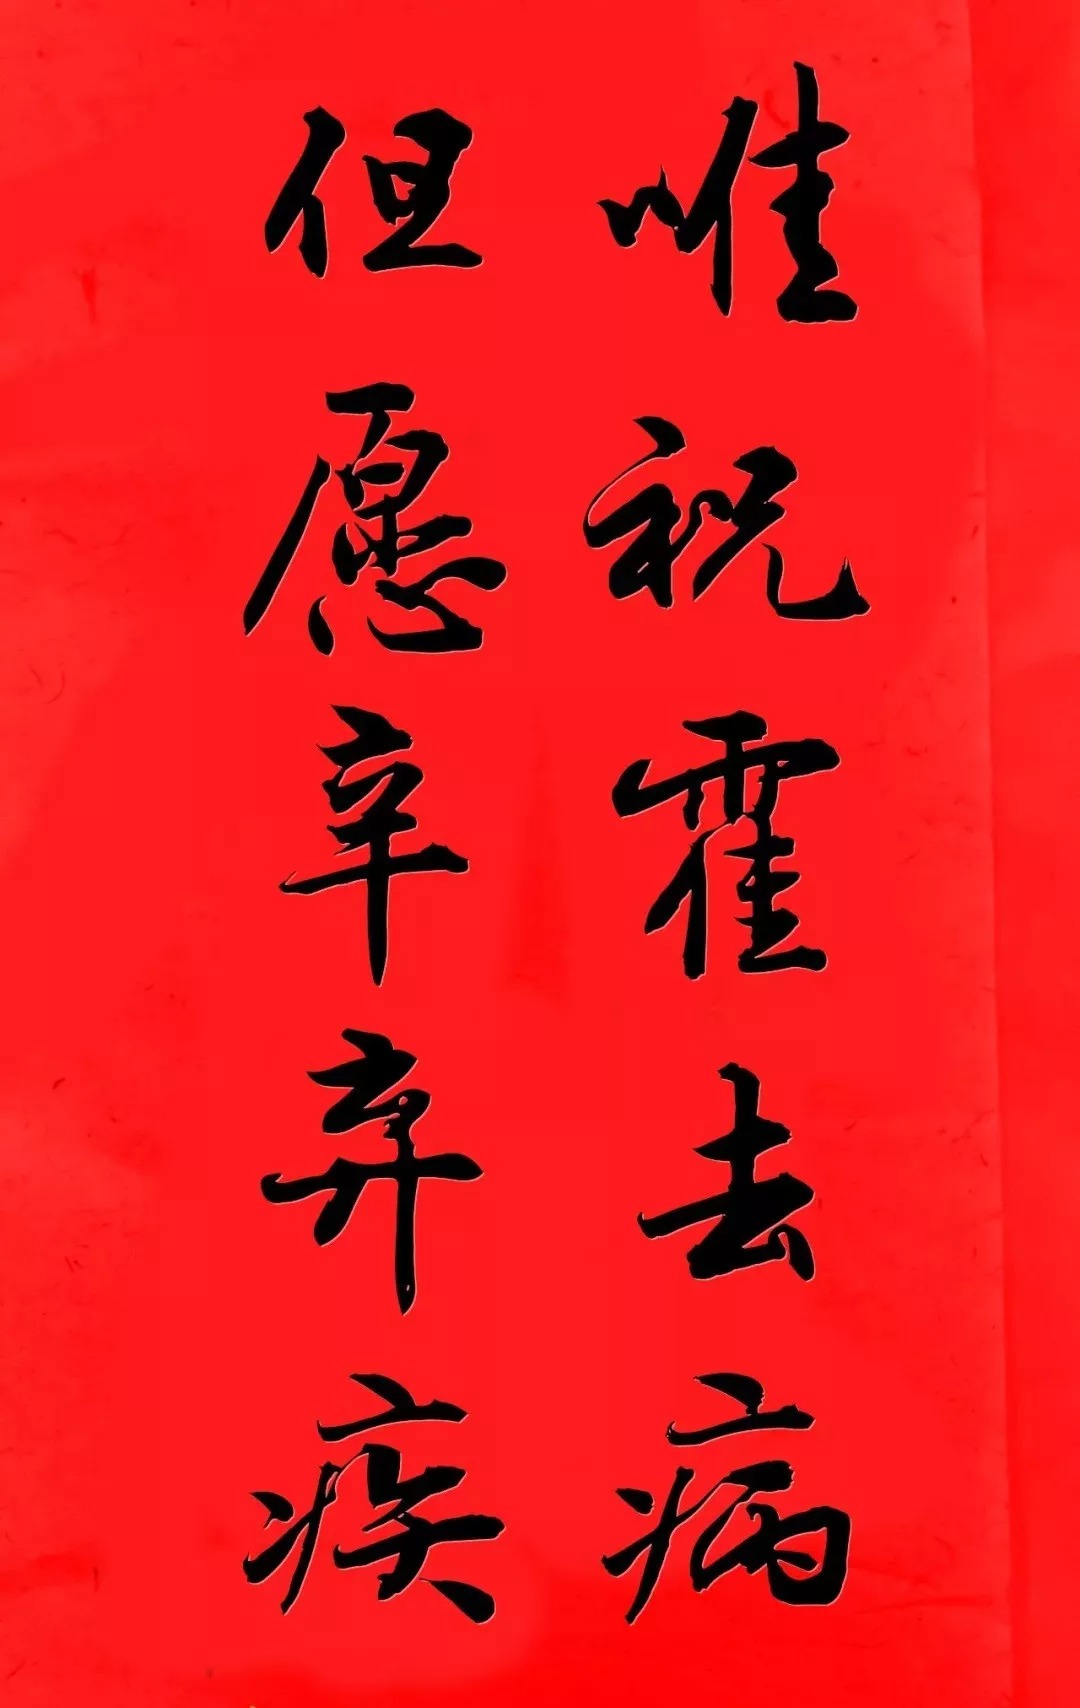 唯祝霍去病
但愿辛弃疾